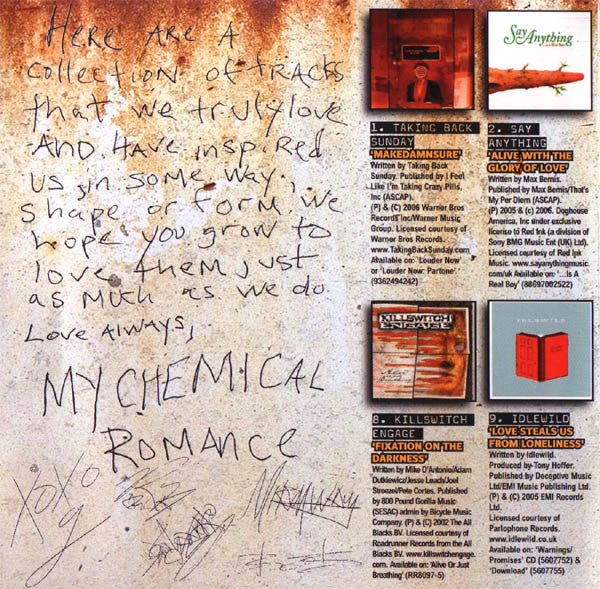 Here are a
collection of tracks
that we truly love
and have inspired
us in some way
shape or form. we
hope you grow to
love them just
as much as we do
Love Always,
MY CHEMICAL
ROMANCE
XOXO
Say Anything
1. TAKING BACK
SUNDAY
'MAKEDAMNSURE'
Written by Taking Back
Sunday. Published by I Feel
Like I'm Taking Crazy Pills,
Inc (ASCAP).
(P) & (C) 2006 Warner Bros
Records Inc/Warner Music
Group. Licensed courtesy of
Warner Bros Records.
www.TakingBackSunday.com
Available on: 'Louder Now'
or 'Louder Now: Partone'.
(9362494242)
2. SAY
ANYTHING
'ALIVE WITH THE
GLORY OF LOVE'
Written by Max Bemis.
Published by Max Bemis/That's
My Per Diem (ASCAP).
(P) 2005 & (c) 2006. Doghouse
America, Inc under exclusive
license to Red Ink (a division of
Sony BMG Music Ent (UK) Ltd).
Licensed courtesy of Red Ink
Music. www.sayanythingmusic.
com/uk Available on: '...Is A
Real Boy' (88697002522)
KILLSWITCH
ENGAGE
IDLEWILD
8. KILLSWITCH
ENGAGE
'FIXATION ON THE
DARKNESS'
Written by Mike D'Antonio/Adam
Dutkiewicz/Jesse Leach/Joel
Stroezel/Pete Cortes. Published
by 800 Pound Gorilla Music
(SESAC) admin by Bicycle Music
Company. (P) & (C) 2002 The All
Blacks BV. Licensed courtesy of
Roadrunner Records from the All
Blacks BV. www.killswitchengage.
com. Available on: 'Alive Or Just
Breathing' (RR8097-5)
9. IDLEWILD
'LOVE STEALS US
FROM LONELINESS'
Written by Idlewild.
Produced by Tony Hoffer.
Published by Deceptive Music
Ltd/EMI Music Publishing Ltd.
(P) & (C) 2005 EMI Records
Ltd.
Licensed courtesy of
Parlophone Records.
www.idlewild.co.uk
Available on: 'Warnings/
Promises' CD (5607752) &
'Download' (5607755)